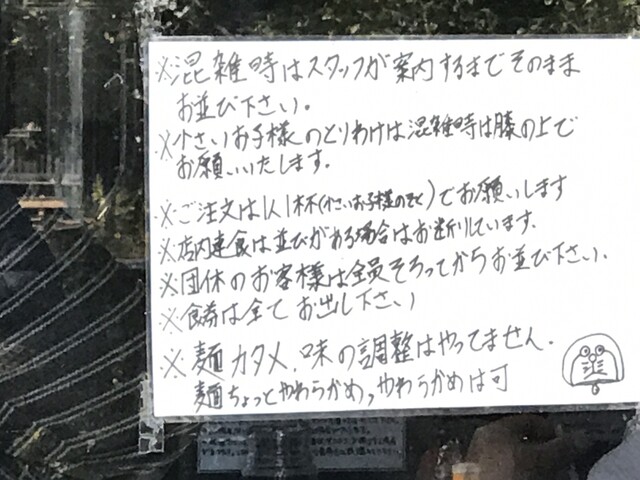 ※混雑時はスタッフが案内するまでそのまま
お並び下さい。
※小さいお子様のとりわけは混雑時は膝の上で
お願いいたします。
※ご注文は1人1杯(小さいお子様のぞく)でお願いします
※店内連食は並びがある場合はお断りしています。
※団体のお客様は全員そろってからお並び下さい。
※食券は全てお出し下さい
※麺カタメ、味の調整はやってません。
麺ちょっとやわらかめ、やわらかめは可